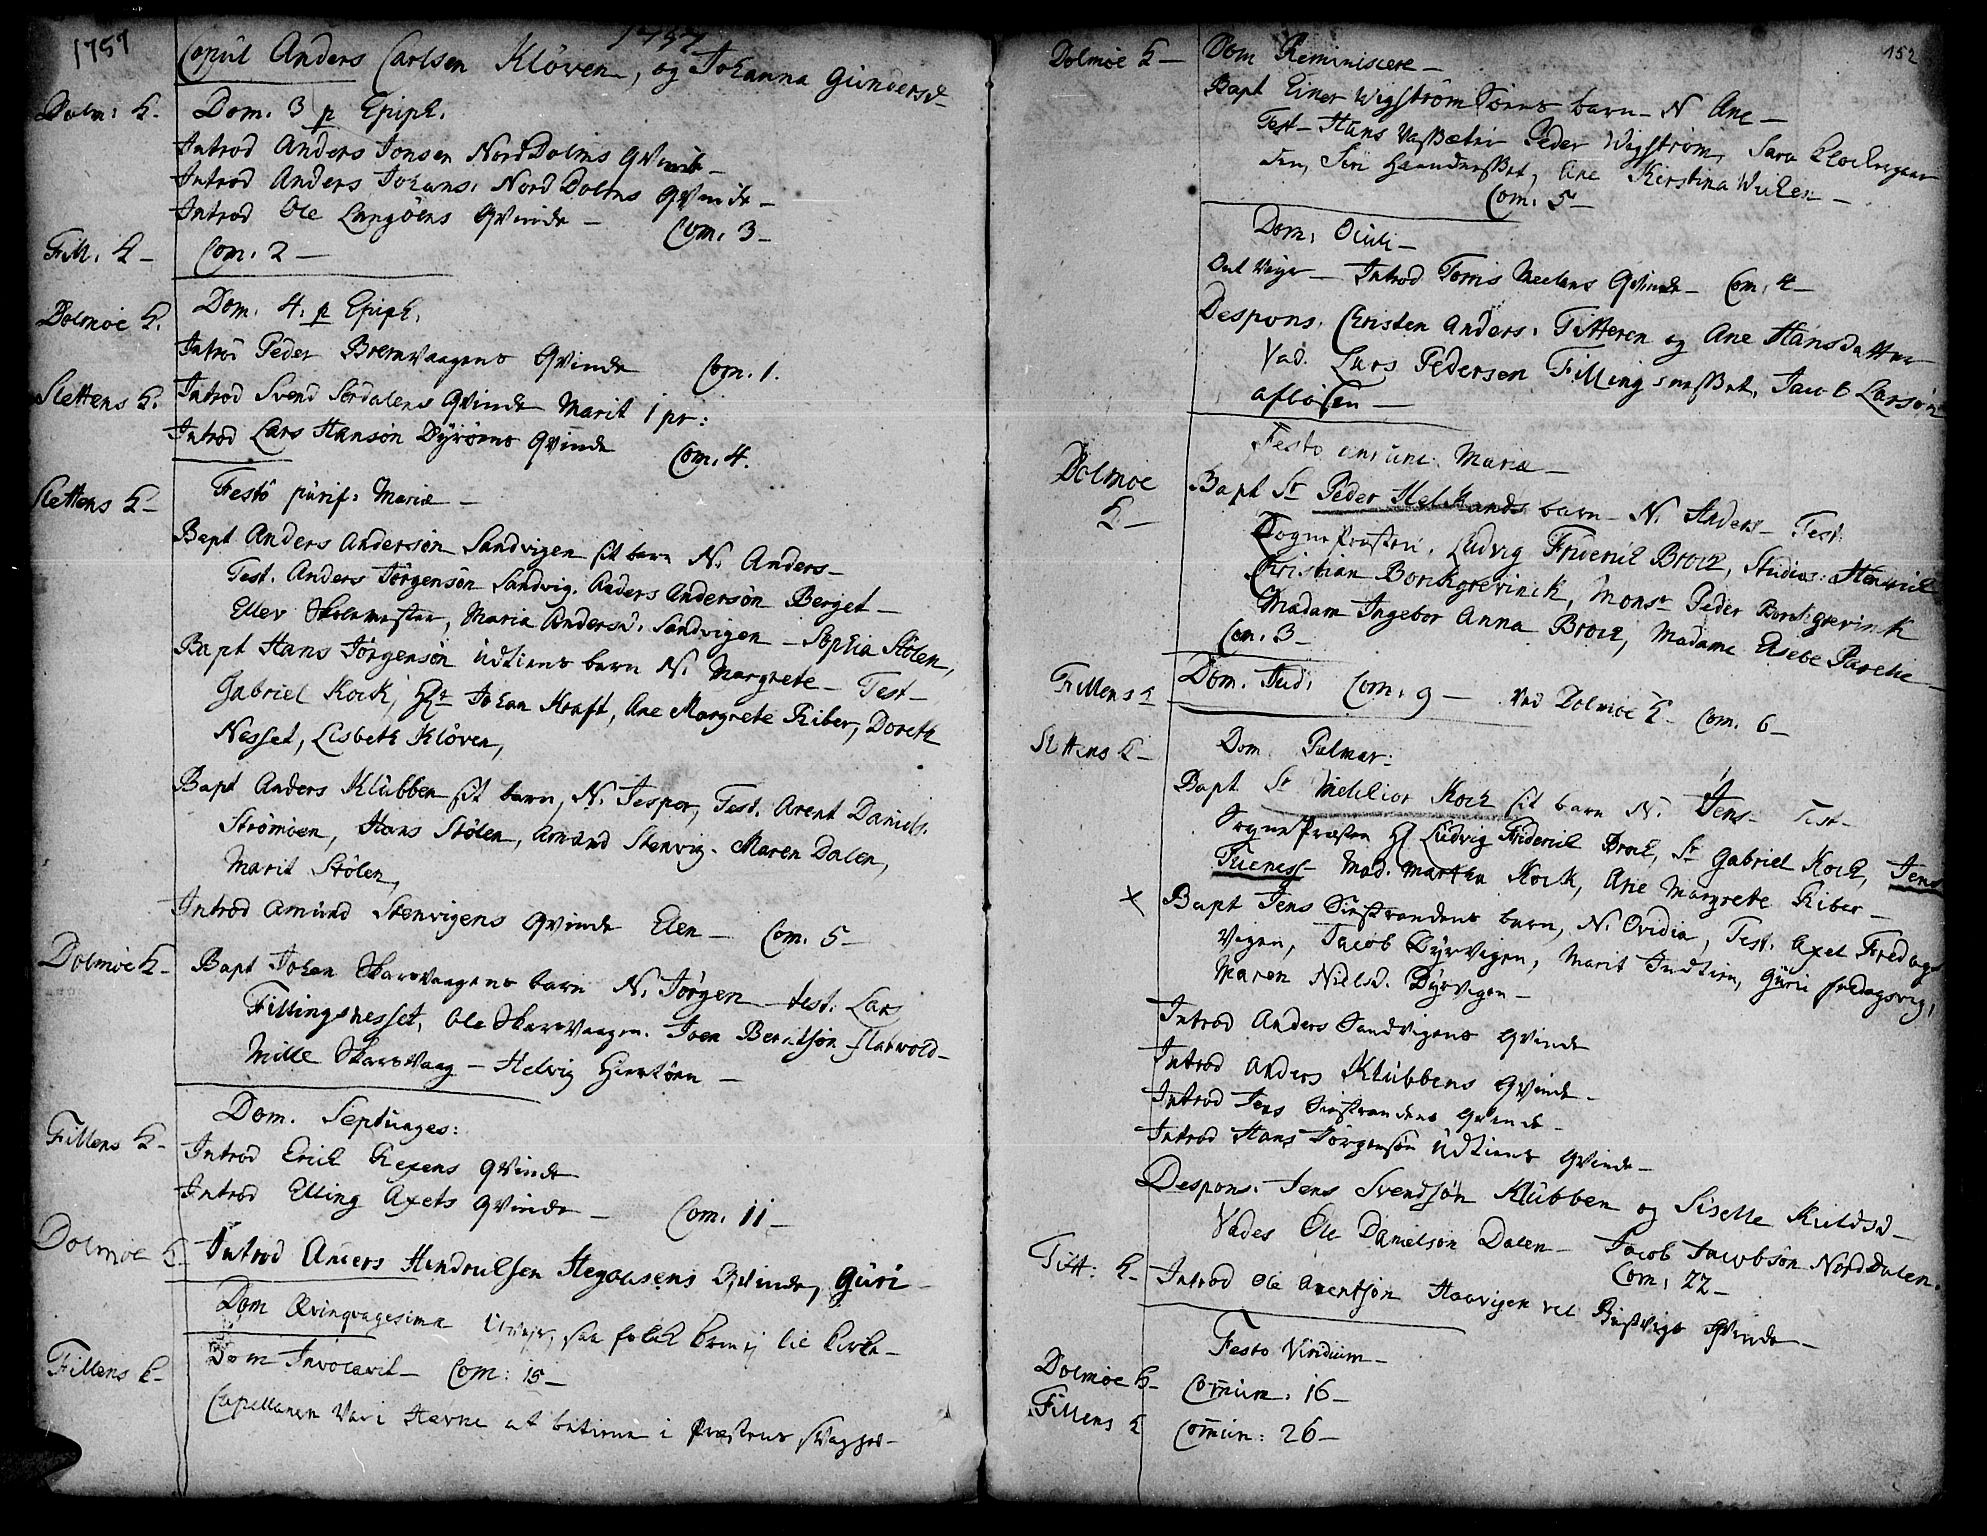 1757
1757
Copul Anders Carlsen Klöven, og Johanna Gundersd
Dolm: K. Dom. 3 p Epiph.
Introd Anders Jonsen NordDolms Qvinde
Introd Anders Johans: Nord Dolms Qvinde
Introd Ole Langöens Qvinde Com. 3
Fill. K Com. 2
Dolmöe K. Dom. 4. p Epiph.
Introd Peder Bremvaagens Qvinde Com. 1.
Slettens K. Introd Svend Sordalens Qvinde Marit 1 pr:
Introd Lars Hansön Dÿröens Qvinde Com. 4.
Slettens K Festo purif: Mariæ
Bapt Anders Andersön Sandvigen sit barn N. Anders
Test. Anders Jörgensön Sandvig. Anders Andersön Berget
Ellev Skolemester, Maria Andersd. Sandvigen Sophia Stölen,
Bapt Hans Jörgensön Udtiens barn N. Margrete Test
Gabriel Kock, Hr Johan Kraft, Ane Margrete Riber, Doreth
Nesset, Lisbeth Klöven,
Bapt Anders Klubben sit barn, N. Jesper, Test. Arent Daniels.
Strömöen, Hans Stölen, Amund Stenvig. Maren Dalen,
Marit Stölen,
Introd Amund Stenvigens Qvinde Elen Com. 5
Dolmöe K Bapt Johan Skarsvaagens barn N. Jörgen test. Lars
Fillingsnesset, Ole Skarsvaagen. Joen Berntsön Flatvold
Mille Skarsvaag Helvig Hiertöen
Dom. Septuages:
Fillens K Introd Erich Rexens Qvinde
Introd Elling Axets Qvinde Com. 11
Dolmöe K Introd Anders Hendrichsen Hegaasens Qvinde, Guri
Dom Qvinqvagesima Uveyr, saa folch kom ej til kirke
Fillens K Dom Invocavit Com: 15
Capellanen var i Havne at betiene i Præstens svaghed
152
Dolmöe K Dom Reminiscere
Bapt Einer Wigströmsönns barn N Ane
Test Hans Peder Wigström, Sara Klockergaar
den, Siri Ane Kirstina Wichen
Com. 5
Dom. Oculi
Ont Veyr Introd Torris Meelens Qvinde Com. 4
Despons. Christen Anders. Titteren og Ane Hansdatter
Vad. Lars Pedersen Fillingsnesset, Jacob Larsön
Festo anunc. Mariæ
Dolmöe
K. Bapt Sr Peder barn N. Anders Test.
Sognepræsten, Ludvig Friderich Broch, Studios: Henrich
Christian Borchgrevinck, Monsr Peder Borchgrevinck
Madam Ingebor Anna Broch, Madame Elsebe Parelie
Com. 3
Fillens K Dom. Jud: Com. 9 Ved Dolmöe K Com. 6
Slettens K Dom. Palmar:
Bapt Sr Melchior Koch sit barn N. Jens Test
SognePræsten Hr Ludvig Friderich Broch, Sr Gabriel Koch, Jens
Mad. Martha Kock, Ane Margrete Riber
x Bapt Jens Sinstrandens barn, N. Ovidia, Test. Axel Fredags
Vigen, Jacob Dÿrvigen, Marit Indtien, Guri fredagsvig,
Maren Nielsd. Dÿrvigen
Introd Anders Sandvigens Qvinde
Introd Anders Klubbens Qvinde
Introd Jens Sinstrandens Qvinde
Introd Hans Jörgensön Udtiens Qvinde
Despons. Jens Svendsön Klubben og Siselle
Vades Ole Danielsön Dalen Jacob Jacobsön NordDalen.
Com. 22
Titt: K Introd Ole Arentsön Haavigen vel Qvinde
Festo Viridium
Dolmöe K Commun. 16
Fillens K Commun: 26